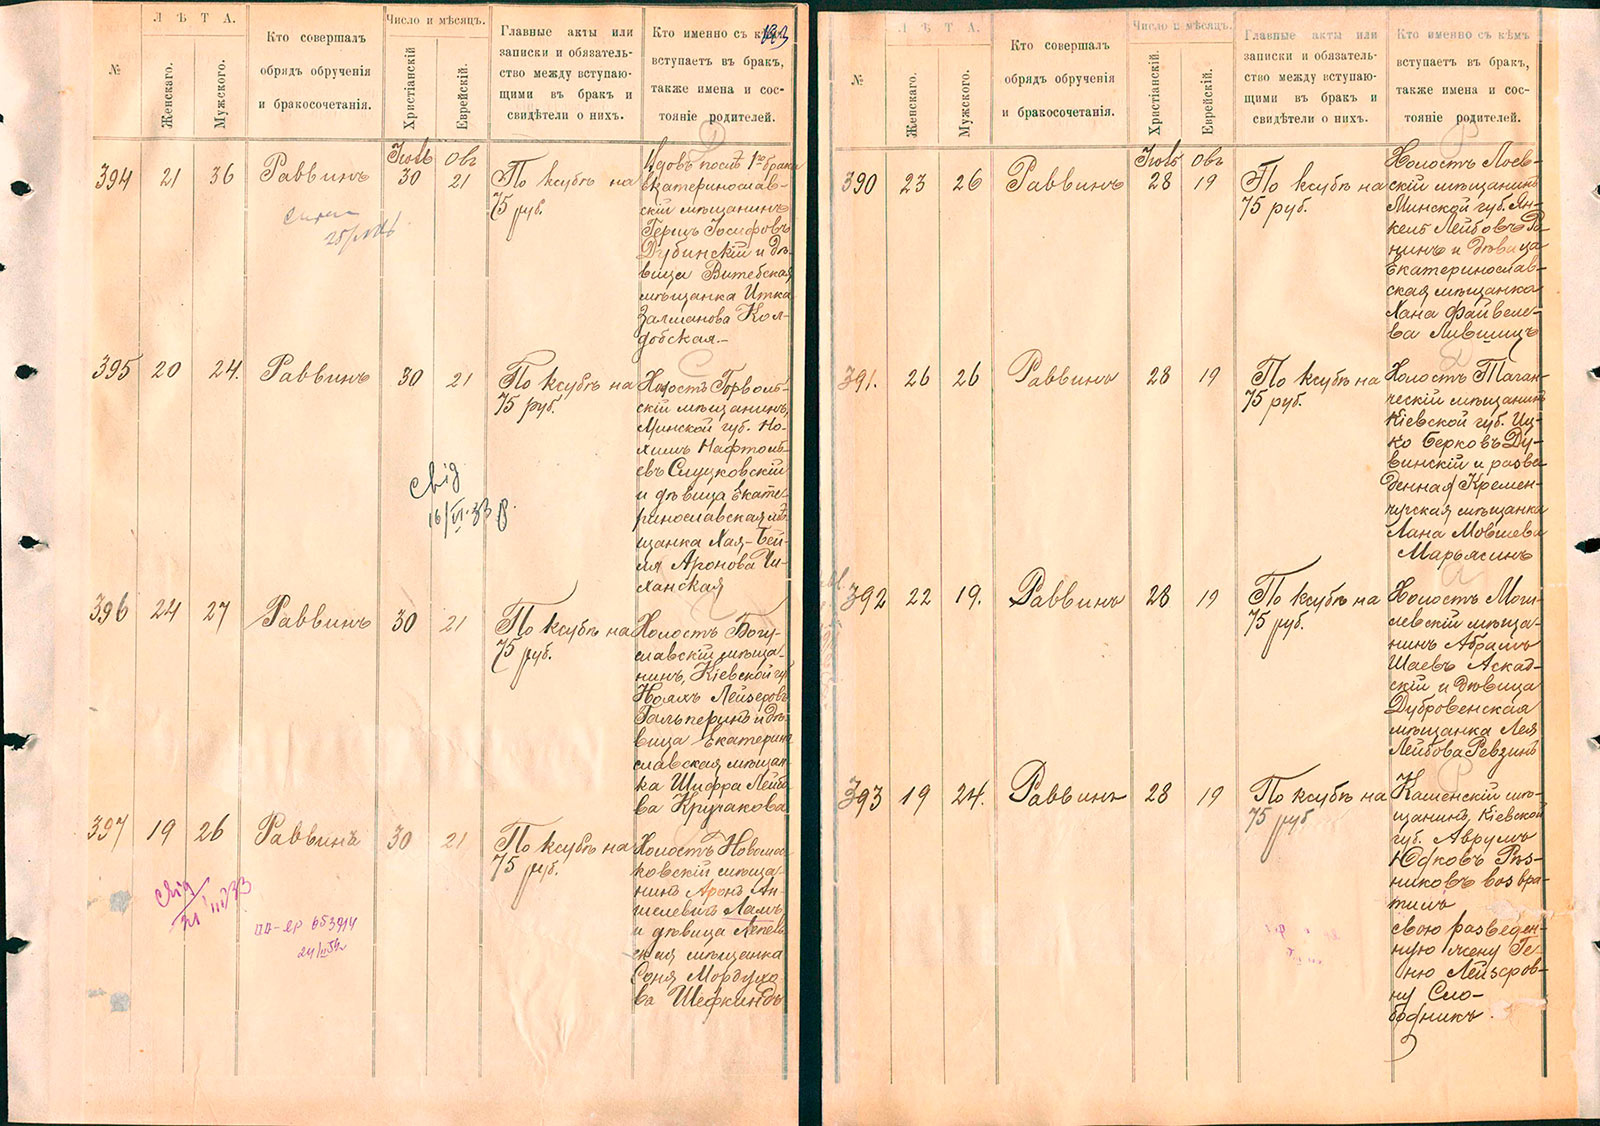 Л Ѣ Т А.
Число и мѣсяцъ.
№
Женскаго.
Мужского.
Кто совершалъ
обрядъ обрученія
и бракосочетанія.
Христіанскій.
Еврейскій.
Главные акты или
записки и обязатель-
ство между вступаю-
щими въ бракъ и
свидѣтели о нихъ.
Кто именно съ кѣмъ
вступаетъ въ бракъ,
также имена и сос-
тояніе родителей.
394 21 36 Раввинъ Іюль 30 Овъ 21
По ксубѣ на
75 руб.
Вдовъ послѣ 1го брака
Екатеринослав-
скій мѣщанинъ
Герцъ Іосифовъ
Дубинскій и дѣ-
вица Витебская
мѣщанка Итка
Залманова Кол-
добская.-
395 20 24. Раввинъ 30 21
По ксубѣ на
75 руб.
Холостъ Горволь-
скій мѣщанинъ,
Минской губ. Но-
химъ Нафтоль-
евъ Слуцковскій
и дѣвица Екате-
ринославская мѣ-
щанка Хая-Бей-
ля Аронова Ци-
ханская
396 24 27 Раввинъ 30 21
По ксубѣ на
75 руб.
Холостъ Богу-
славскій мѣща-
нинъ, Кіевской губ
Ноахъ Лейзеровъ
Гальперинъ и дѣ-
вица Екатерино
славская мѣщан-
ка Шифра Лейбо-
ва Кручакова
397 19 26 Раввинъ 30 21
По ксубѣ на
75 руб.
Холостъ Новомос-
ковскій мѣща-
нинъ Аронъ Ан-
шелевичъ Ламъ
и дѣвица Лепель
ская мѣщанка
Соня Мордухо-
ва Шефкиндъ
Л Ѣ Т А.
Число и мѣсяцъ.
№
Женскаго.
Мужского.
Кто совершалъ
обрядъ обрученія
и бракосочетанія.
Христіанскій.
Еврейскій.
Главные акты или
записки и обязатель-
ство между вступаю-
щими въ бракъ и
свидѣтели о нихъ.
Кто именно съ кѣмъ
вступаетъ въ бракъ,
также имена и сос-
тояніе родителей.
390 23 26 Раввинъ Іюль 28 Овъ 19
По ксубѣ на
75 руб.
Холостъ Лоев-
скій мѣщанинъ
Минской губ. Ян-
кель Лейбовъ Ра-
цинъ и дѣвица
Екатеринослав-
ская мѣщанка
Хана Файвеле-
ва Лившицъ
391. 26 26 Раввинъ 28 19
По ксубѣ на
75 руб.
Холостъ Таган-
ческій мѣщанинъ
Кіевской губ. Иц-
ко Берковъ Ду-
винскій и разве-
денная Кремен-
чугская мѣщанка
Хана Мовшева
Марьясинъ
392 22 19. Раввинъ 28 19
По ксубѣ на
75 руб.
Холостъ Моги-
левскій мѣща-
нинъ Абрамъ
Шаевъ Аскад-
скій и дѣвица
Дубровенская
мѣщанка Лея
Лейбова Ревзинъ
393 19 24. Раввинъ 28 19
По ксубѣ на
75 руб
Каменскій мѣ-
щанинъ, Кіевской
губ. Аврумъ
Юдковъ Рѣз-
никовъ возвра-
тилъ
свою разведен-
ную жену Ге-
ню Лейзеров-
ну Сло-
бодникъ.